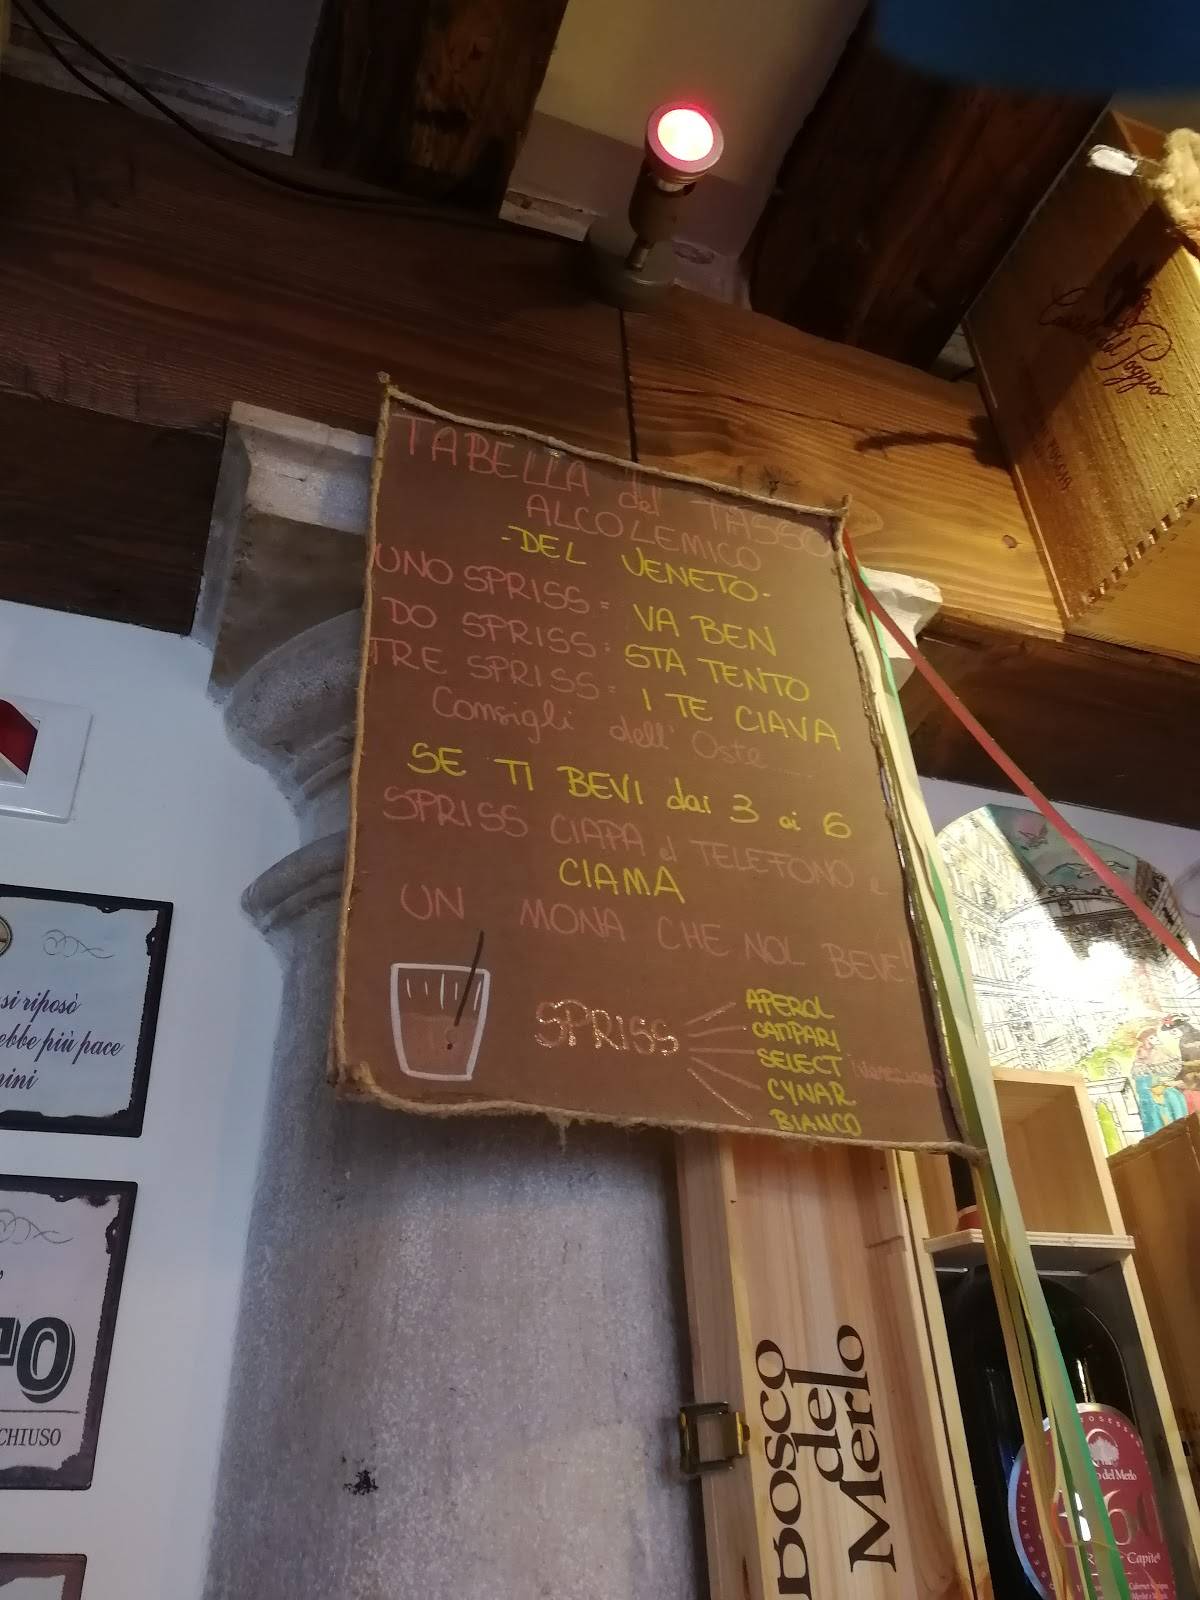 TABELLA del TASSO
ALCOLEMICO
-DEL VENETO-
UNO SPRISS = VA BEN
DO SPRISS: STA TENTO
TRE SPRISS = I TE CIAVA
Consigli dell' Oste.....
SE TI BEVI dai 3 ai 6
SPRISS CIAPA el TELEFONO e
CIAMA
UN MONA CHE NOL BEVE!!
SPRISS
APEROL
CAMPARI
SELECT
CYNAR
BIANCO
si riposò
ebbe più pace
CHIUSO
Bosco
del
Merlo
Poggio
del Merlo
Capite